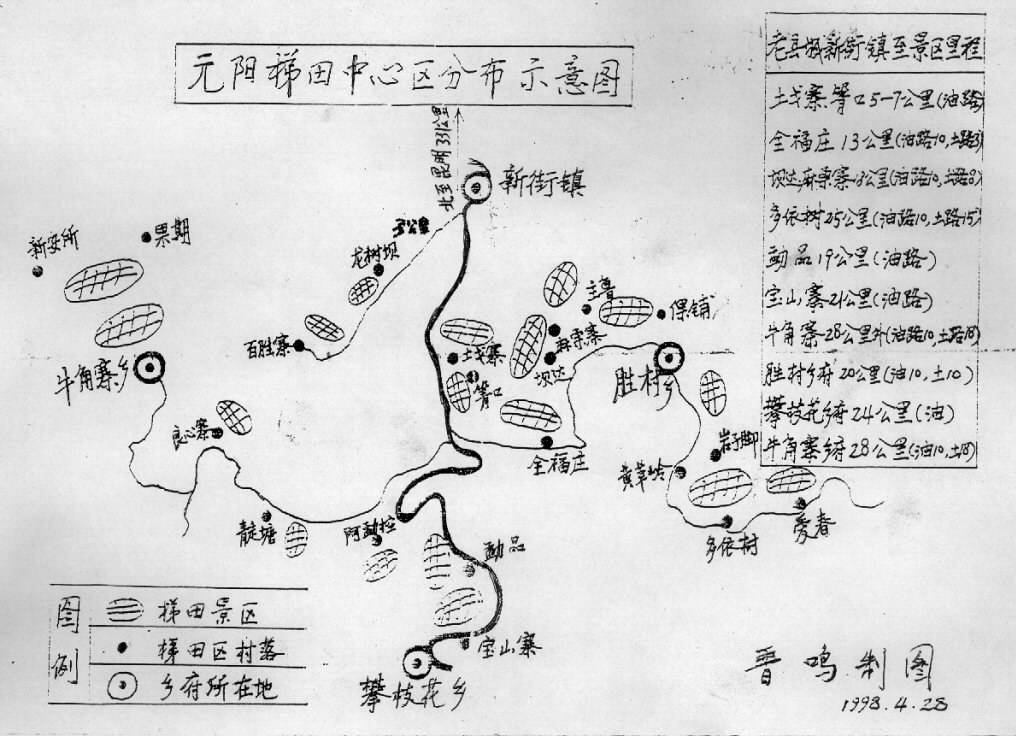 元阳梯田中心区分布示意图
老县城新街镇至景区里程
土戈寨箐口5-7公里(油路)
全福庄13公里(油路10,土路3)
坝达麻栗寨
多依树25公里(油路10,土路15)
勐品19公里(油路)
宝山寨21公里(油路)
牛角寨28公里外(油路10,土路18)
胜村乡府20公里(油10,土10)
攀枝花乡府24公里(油)
牛角寨乡府28公里(油10,土18)
北至昆明331公里
新街镇
新安所
果期
龙树坝
百胜寨
牛角寨乡
良心寨
土戈寨
箐口
主鲁
麻栗寨
坝达
保铺
胜村乡
全福庄
岩子脚
黄草岭
多依树
爱春
龍塘
阿勐控
勐品
宝山寨
攀枝花乡
图例
梯田景区
梯田区村落
乡府所在地
晋鸣制图
1998.4.28